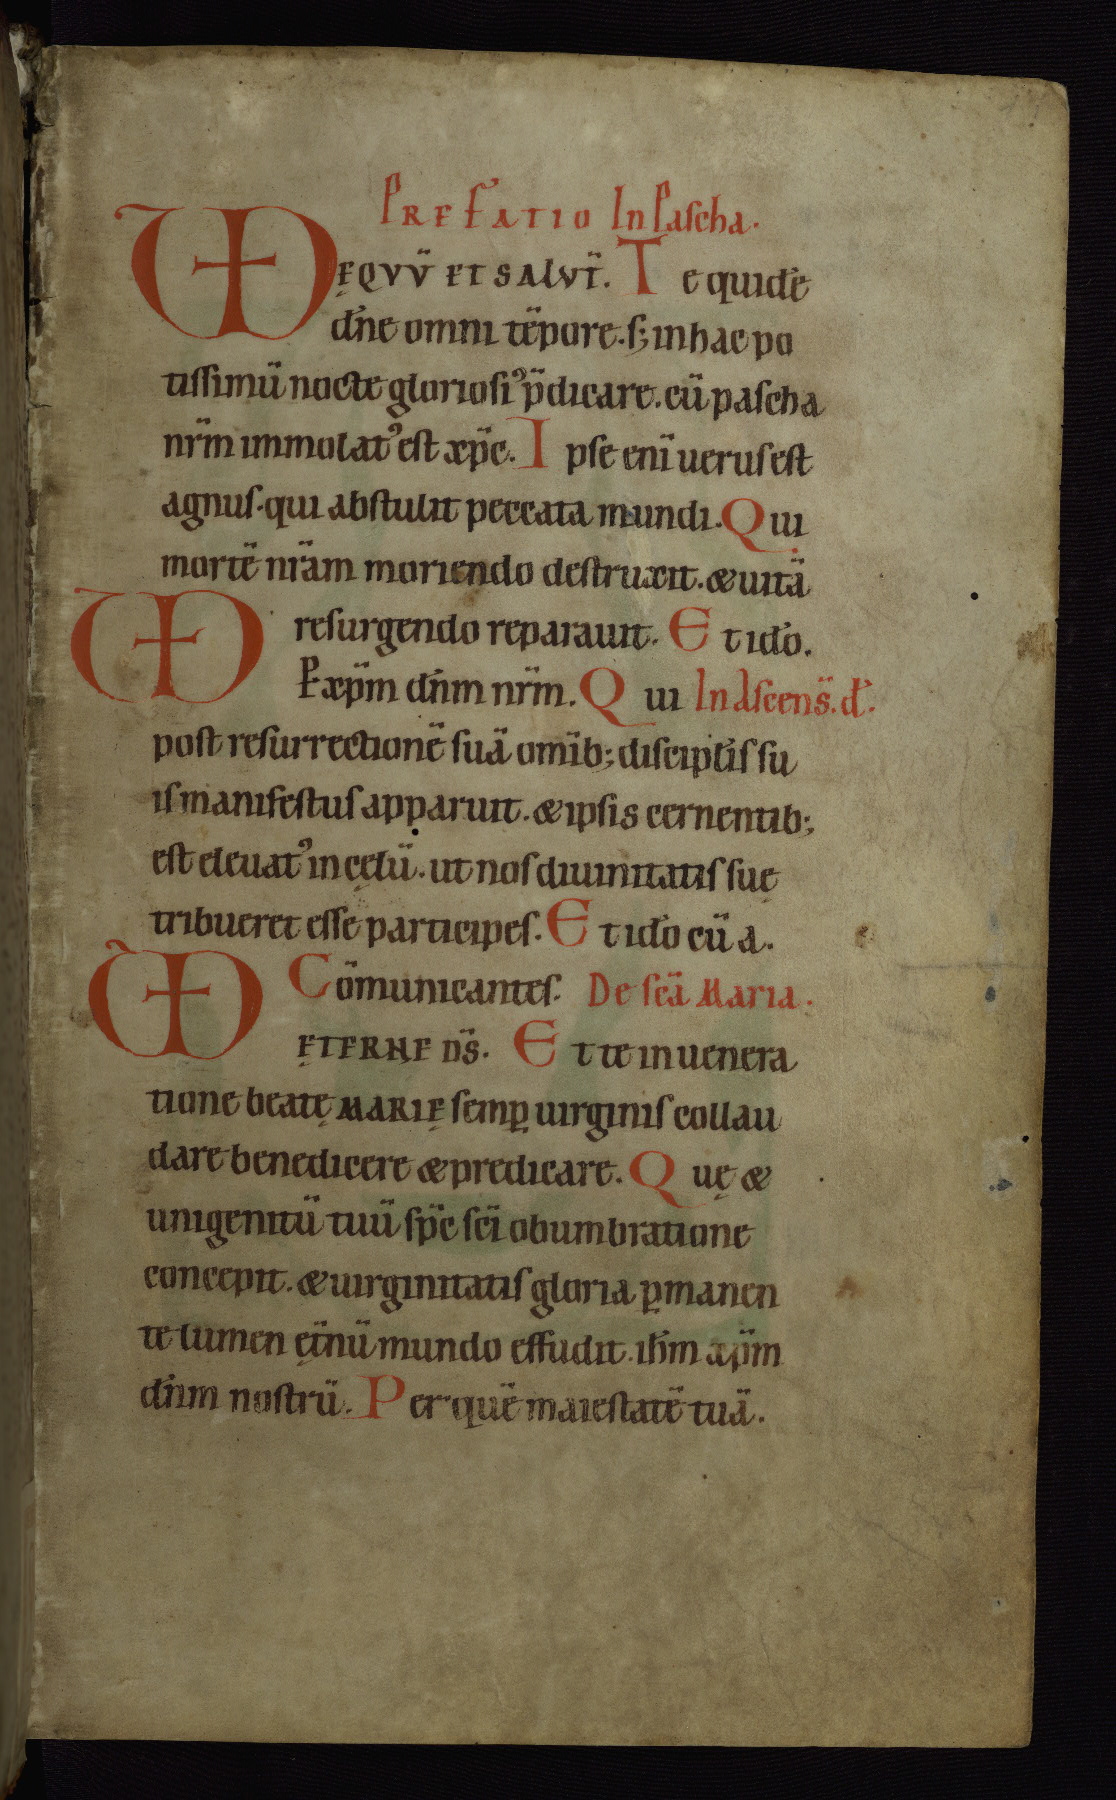 PREFATIO In Pascha.
ęQVV̄ ET SALVT̄. Te quidē
dn̄e omni tēpore. s; in hac po
tissimū nocte gloriosiꝰ p̄dicare. cū pascha
nr̄m immolatꝰ est xp̄c. Ipse eni̅ uerus est
agnus. qui abstulit peccata mundi. Qui
mortē nr̄am moriendo destruxit. & uitā
resurgendo reparauit. Et id̄o.
P xp̄m dn̄m nr̄m. Qui In Ascens̄. d̄.
post resurrectionē suā om̄ib; discipl̄is su
is manifestus apparuit. & ipsis cernentib;
est eleuatꝰ in cęlū. ut nos diuinitatis suę
tribueret esse participes. Et id̄o cū a.
Cōmunicantes. De sc̄a Maria.
ęTERNE DS̄. Et te in uenera
tione beatę MARIę semꝑ uirginis collau
dare benedicere & predicare. Quę &
unigenitū tuū sp̄c sc̄i obumbratione
concepit. & uirginitatis gloria ꝑmanen
te lumen ęt̄nū mundo effudit. ih̄m xp̄m
dn̄m nostrū. Per quē maiestatē tuā.